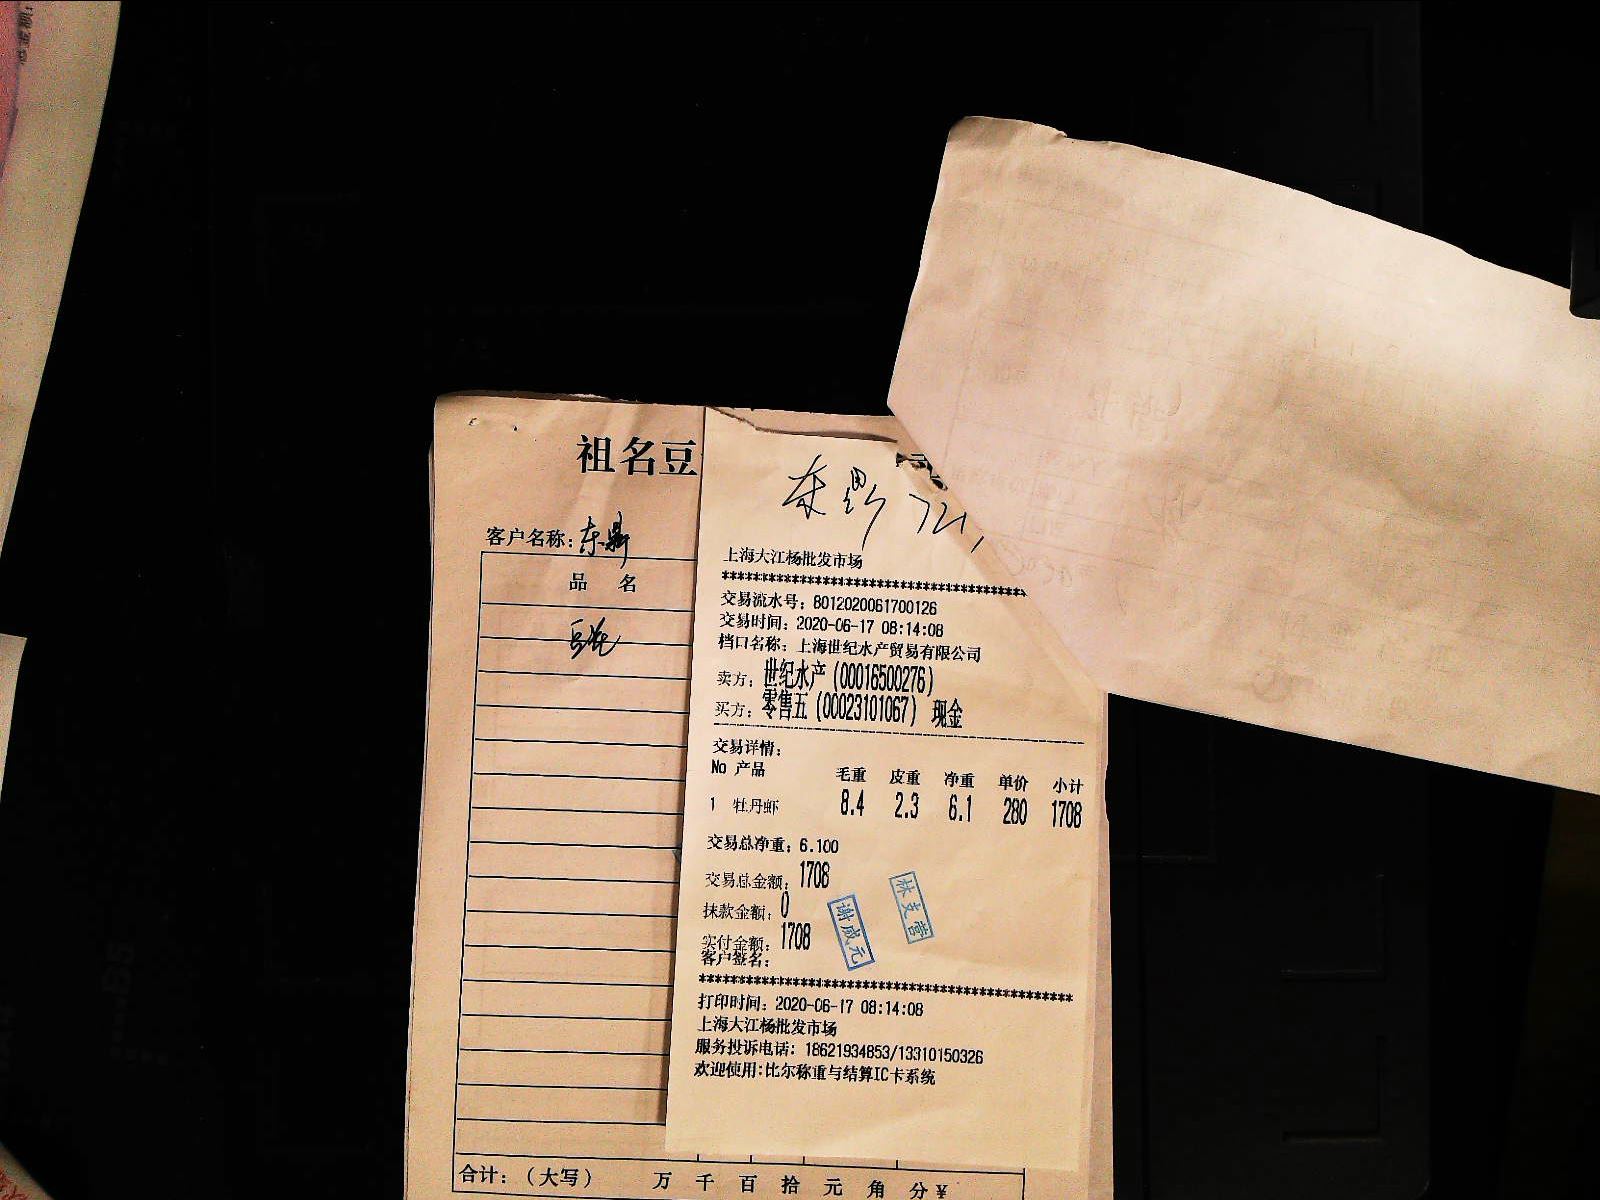 祖名豆
客户名称：东鼎
品 名
合计：（大写） 万 千 百 拾 元 角 分 ¥
东鼎 721
上海大江杨批发市场
交易流水号：8012020061700126
交易时间：2020-06-17 08:14:08
档口名称：上海世纪水产贸易有限公司
卖方：世纪水产(00016500276)
买方：零售五(00023101067) 现金
交易详情：
No 产品 毛重 皮重 净重 单价 小计
1 牡丹虾 8.4 2.3 6.1 280 1708
交易总净重：6.100
交易总金额：1708
抹款金额：0
实付金额：1708
客户签名：
谢咸元
林支营
打印时间：2020-06-17 08:14:08
上海大江杨批发市场
服务投诉电话：18621934853/13310150326
欢迎使用:比尔称重与结算IC卡系统